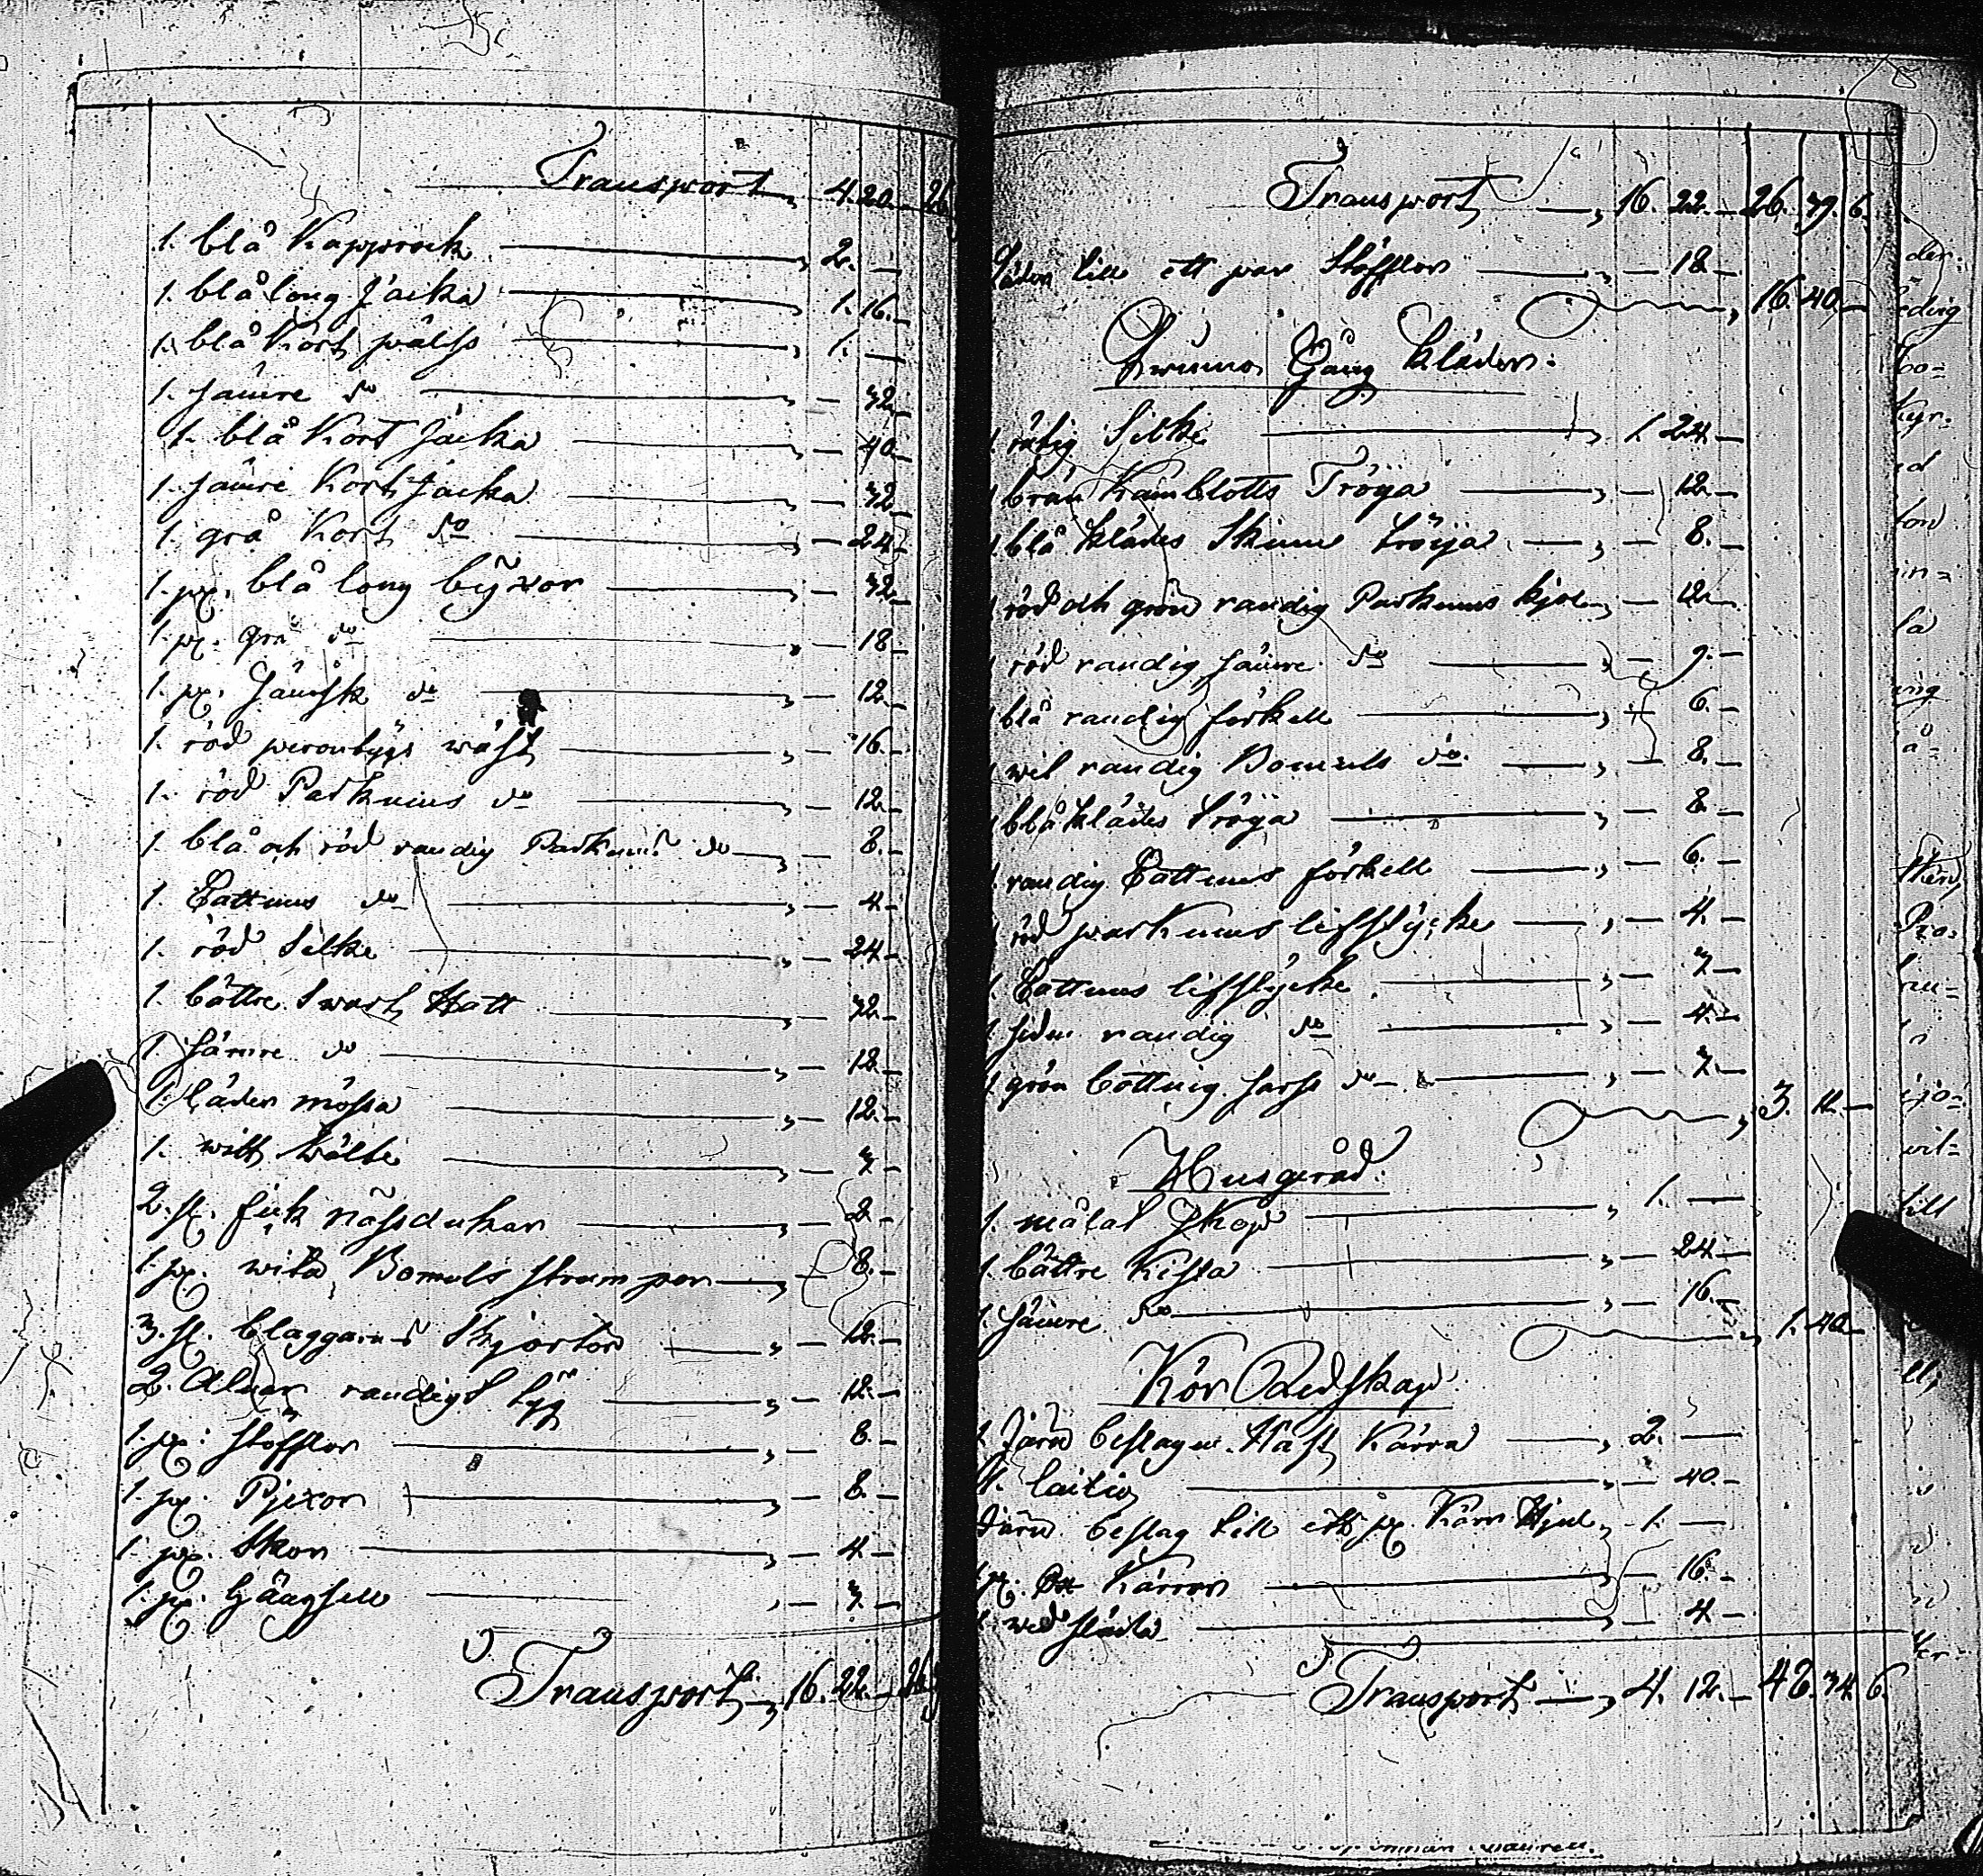 Transport, 4. 20.— 26.
1. blå Kapprock — 2. —
1. blå long Jacka — 1. 16. —
1. blå Kort päls — 1. —
1. sämre do — 32. —
1. blå Kort Jacka — 40. —
1. sämre Kort Jacka — 32. —
1. grå Kort do — 24. —
1. pr. blå long byxor — 32. —
1. pr. grå do — 18. —
1. pr. Sämsk do — 12. —
1. röd wäst — 16. —
1. röd Parkums do — 12. —
1. blå och röd randig Parkums do — 8. —
1. Cattuns do — 4. —
1. röd Silke — 24. —
1. bättre Swart Hatt — 32. —
1. sämre do — 12. —
1. läder mössa — 12. —
1. witt bälte — 3. —
2. st. fick näsdukar — 2. —
1. pr. wita Bomuls strumpor — 8. —
3. st. blaggarns Skjortor — 12. —
2. Alnar randigt tyg — 12. —
1. pr. stöfflor — 8. —
1. pr. Pjexor — 8. —
1. pr. Skor — 4. —
1. pr. — 3. —
Transport, 16. 22. —
Transport, 16. 22. — 26. 39. 6.
Läder till ett par Stöfflor — 18. —
16. 40. —
Qwinno Gång kläder.
1 Silke — 1. 24. —
1 brun Kamblotts Tröya — 12. —
1 blå klädes Skinn tröya — 8. —
1 röd och grön randig Parkums kjol — 12. —
1 röd randig sämre do — 9. —
1 blå randig förkell — 6. —
1 wit randig Bomuls do — 8. —
1 blå klädes tröya — 8. —
1 randig Cattuns förkell — 6. —
1 röd parkums lifstycke — 4. —
1. Cattuns lifstycke — 3. —
1 siden randig do — 4. —
1 grön bottnig sars do — 3. —
3. 11. —
Husgeråd.
1. målat Skåp — 1. —
1. bättre Kista — 24. —
1. sämre do — 16. —
1. 40. —
Kör Redskap.
1 Järn beslagen Häst Kärra — 2. —
40. —
Järn beslag till ett pr. Kärr Hjul — 1. —
1 pr. Ox Kärror — 16. —
1. wed släda — 4. —
Transport — 4. 12. — 48. 34. 6.